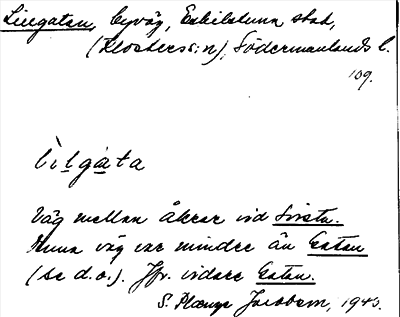 Lillgatan, byväg, Eskilstuna stad,
(Klosters s:n), Södermanlands l.
109.
lìlgàta
Väg mellan åkrar vid Sirsta.
Denna väg var mindre än Gatan
(se d.o.). Jfr. vidare Gatan.
S. Jacobsen, 1943.